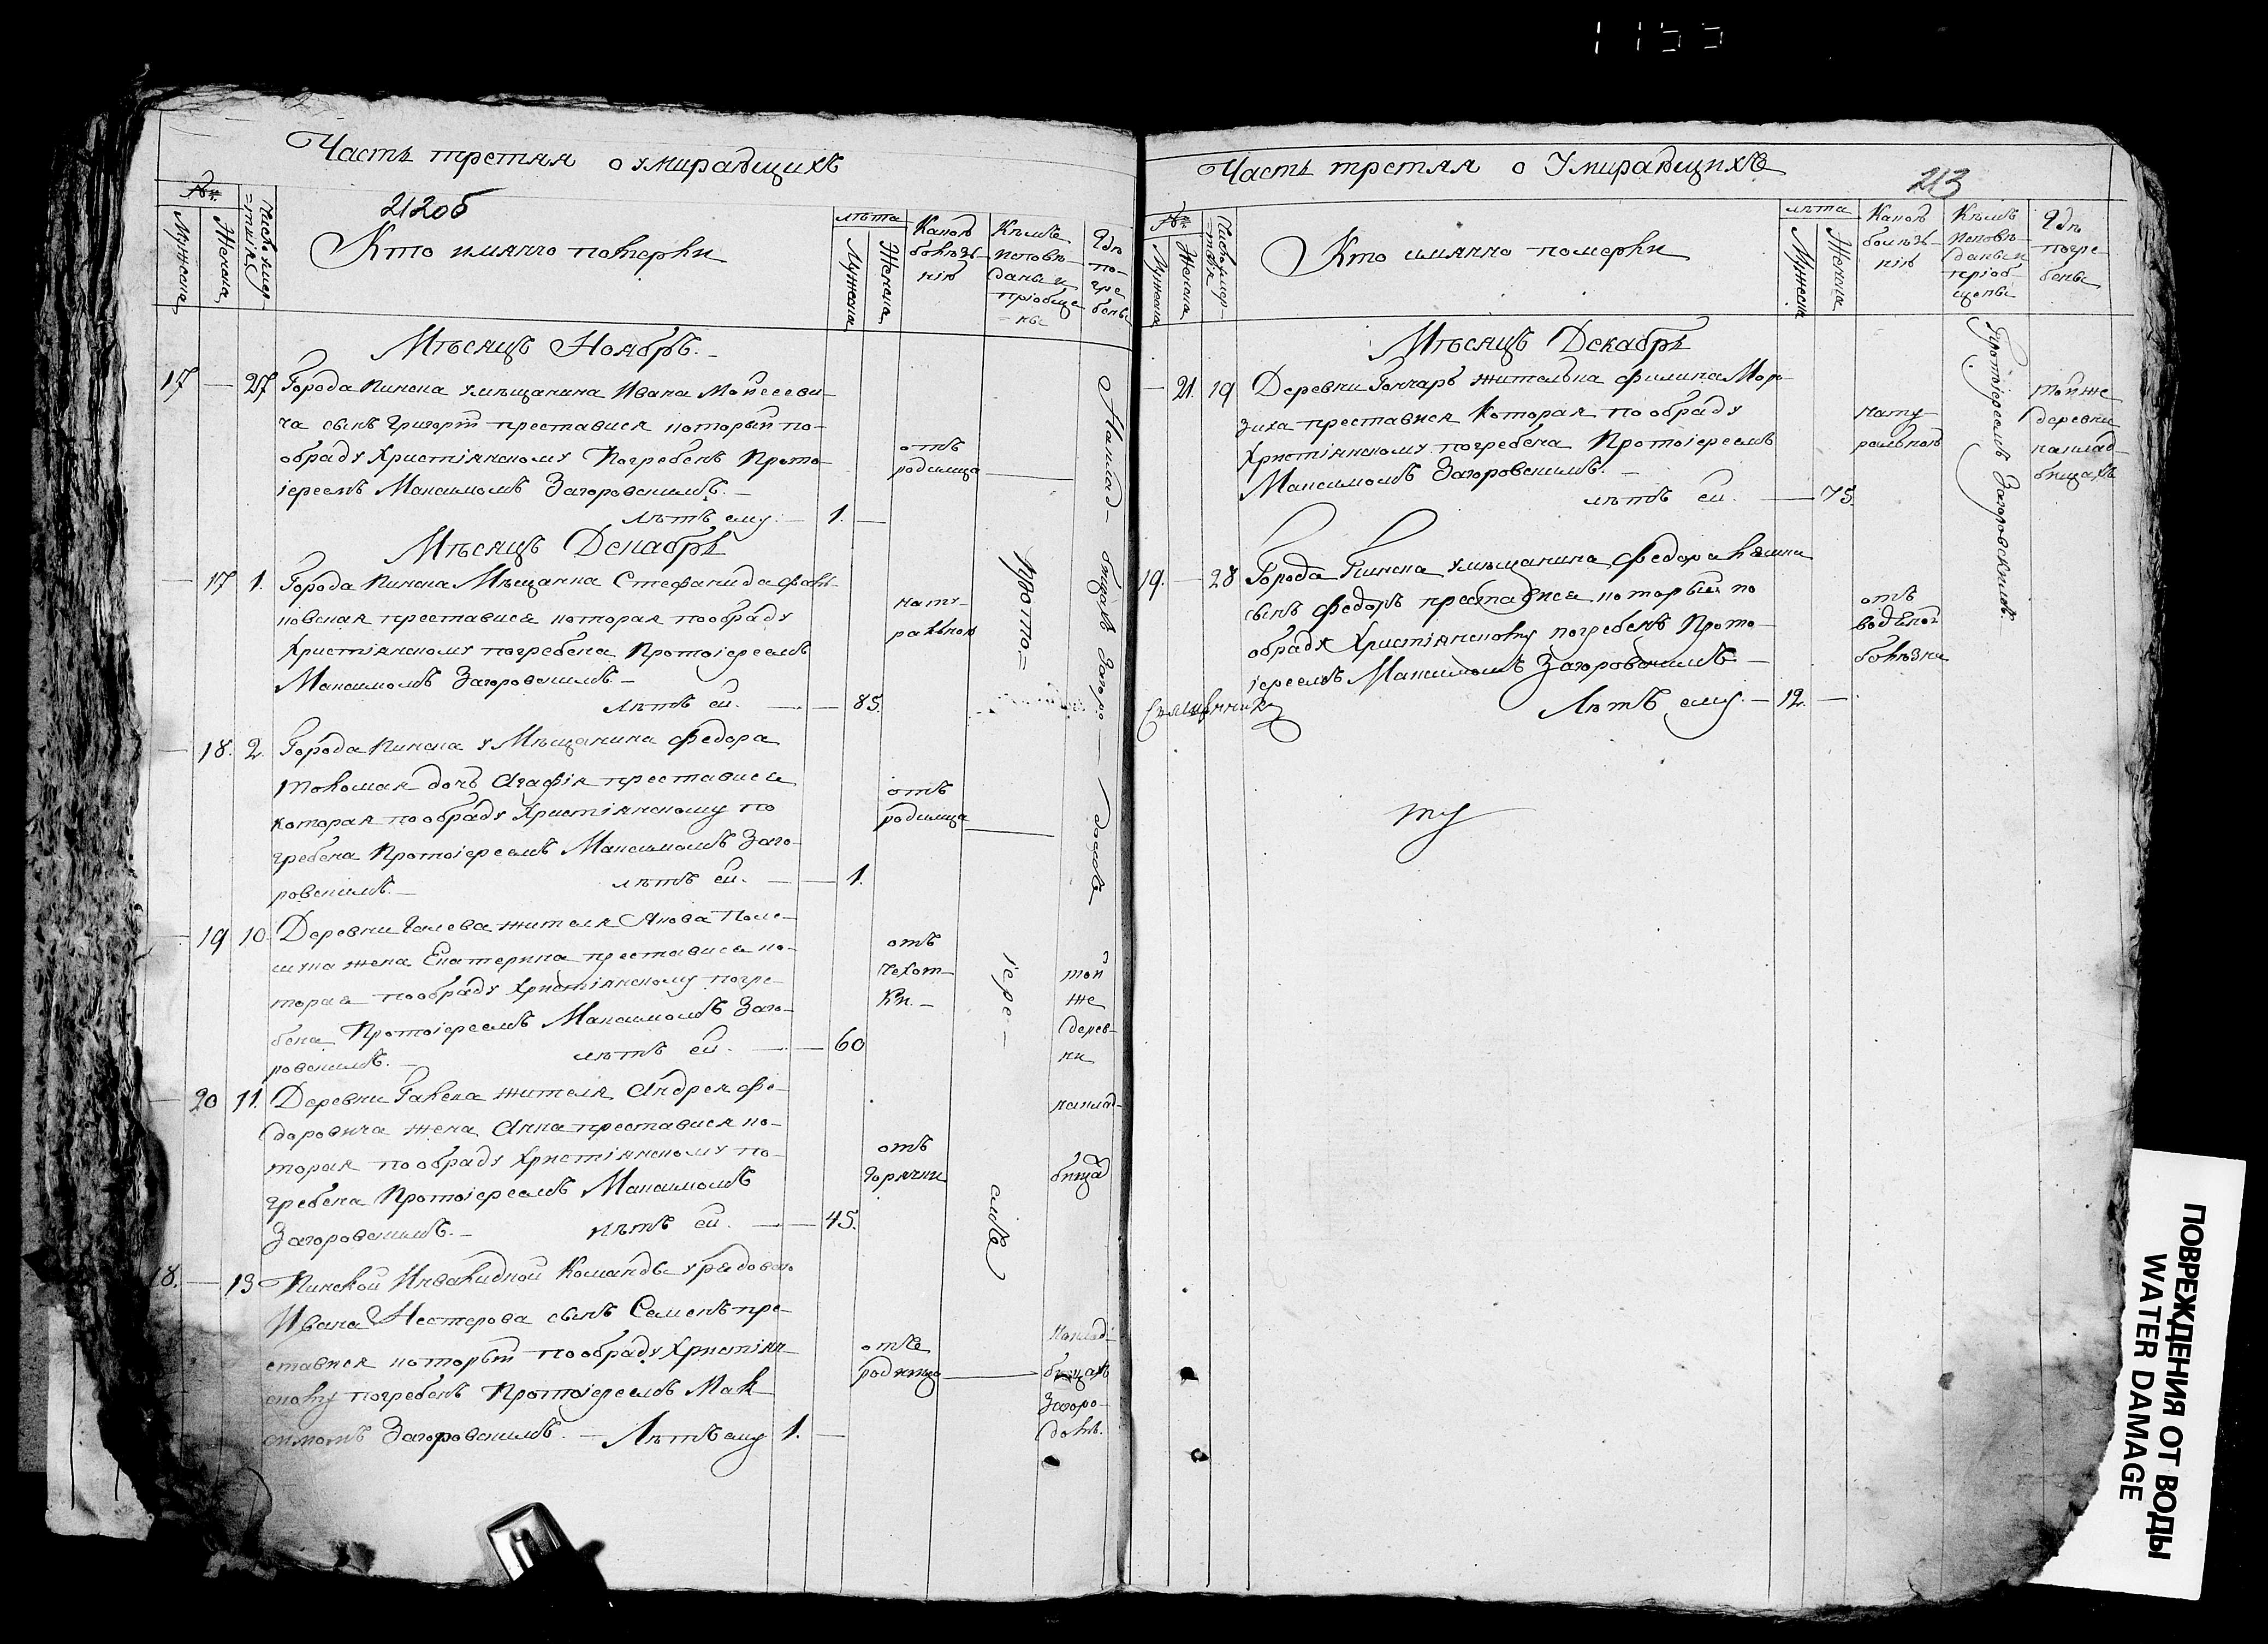 1155
Часть третяя о умирающихъ
212об
№
Мужеска
Женска
Кто имянно померли
лѣта
Мужеска
Женска
Какою
болѣз-
нію
Кѣмъ
исповѣ-
даны и
пріобще
-ны
Гдѣ
по-
гре
бены
Мѣсяцъ Ноябрь.-
17 — 27 Города Пинска умѣщанина Ивана Мойсееви-
ча сынъ Григорій преставися который по-
обряду Христіянскому Погребенъ Прото-
іереемъ Максимомъ Загоровскимъ.-
лѣтъ ему.— 1.—
отъ
родимца
Мѣсяцъ Декабрь
— 17 1. Города Пинска Мѣщанка Стефанида
новская преставися которая пообряду
Христіянскому погребена Протоіереемъ
Максимомъ Загоровскимъ.-
лѣтъ ей. — 85.
нату-
ральною
— 18. 2. Города Пинска у Мѣщанина Федора
дочь Агафія преставися
которая пообряду Христіянскому по
гребена Протоіереемъ Максимомъ Заго-
ровскимъ.— лѣтъ ей. — 1.
отъ
родимца
— 19 10. Деревни Галева жителя Якова
жена Екатерина преставися ко-
торая пообряду Христіянскому погре-
бена Протоіереемъ Максимомъ Заго-
ровскимъ.— лѣтъ ей. — 60
отъ
чехот-
ки.-
той
же
дерев-
ни
— 20 11. Деревни жителя Андрея Фе-
доровича жена Анна преставися ко-
торая пообряду Христіянскому по-
гребена Протоіереемъ Максимомъ
Загоровскимъ.— лѣтъ ей. — 45.
отъ
горячки
наклад-
бища
18. — 13 Пинской Инвалидной Команды урядоваго
Ивана Нестерова сынъ Семенъ пре-
ставися который пообряду Христіян-
скому погребенъ Протоіереемъ Мак
симомъ Загоровскимъ.— Лѣтъ ему 1.—
отъ
родимца
Наклад-
бищахъ
Загоро-
домъ.
Прото=
іере-
емъ
Наклад-
бищахъ Загоро-
домъ
Часть третяя о Умирающихъ
213
№
Мужеска
Женска
Кто имянно померли
лѣта
Мужеска
Женска
Какою
болѣз-
нію
Кѣмъ
исповѣ-
даны и
пріоб-
щены
Гдѣ
погре-
бены
Мѣсяцъ Декабрь
— 21. 19 Деревни Гончаръ жителька
преставися Которая пообряду
Христіянскому погребена Протоіереемъ
Максимомъ Загоровскимъ.-
лѣтъ ей. — 75.
нату
ральною
Протоіереемъ Загоровскимъ.
тойже
деревни
наклад-
бищахъ
19. — 28 Города Пинска умѣщанина Федора
сынъ Федоръ преставися который по
обряду Христіянскому погребенъ Прото-
іереемъ Максимомъ Загоровскимъ —
Лѣтъ ему.— 12. —
отъ
водяной
болѣзни
Священникъ
ту
ПОВРЕЖДЕНИЯ ОТ ВОДЫ
WATER DAMAGE